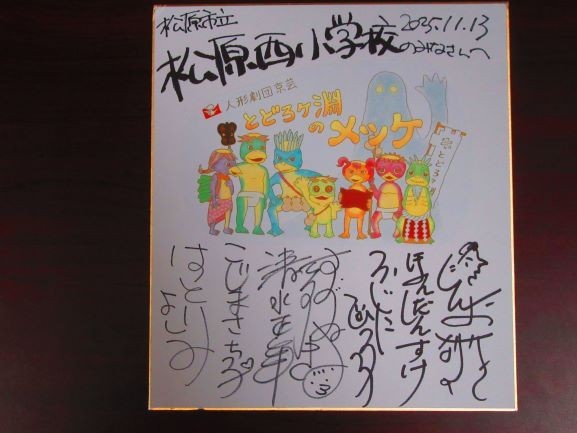 松原市立
2025.11.13
松原西小学校のみなさんへ
人形劇団京芸
とどろヶ淵の
メッケ
とどろヶ
ほんだんすけ
ふじたひろつぐ
清水正年
こじまさち子
はとりよしみ